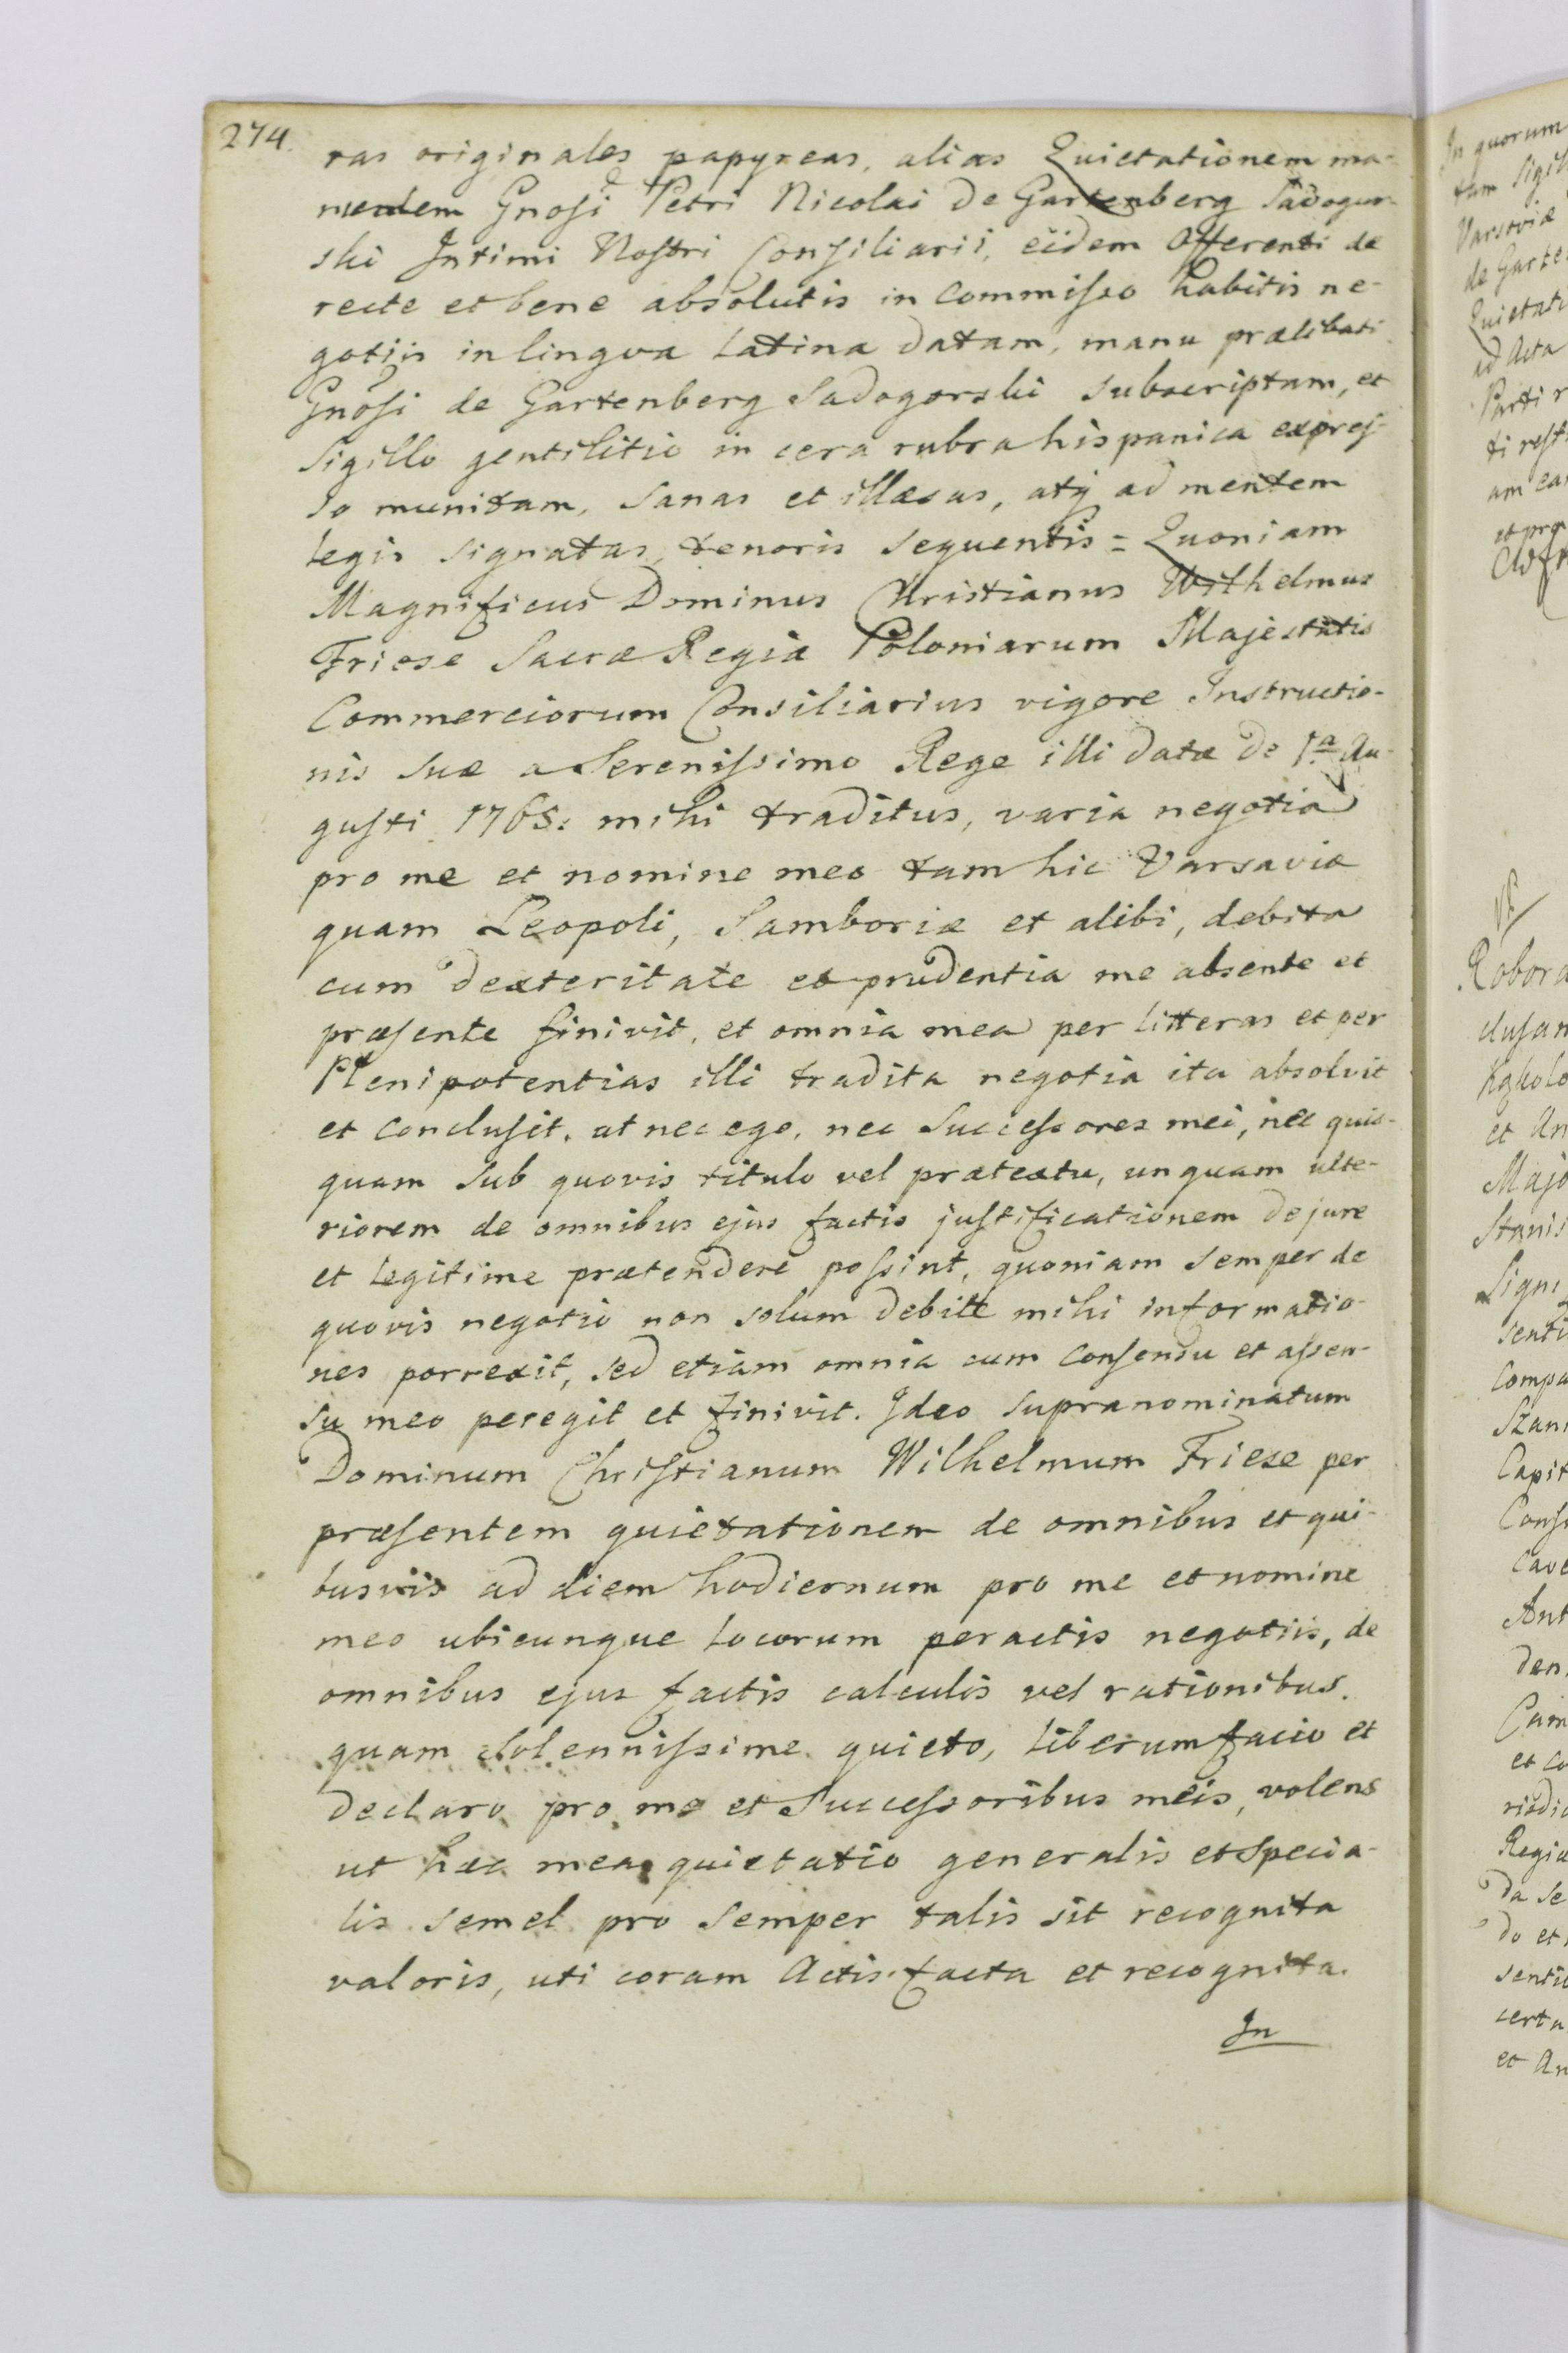 274.
ras originales papyreas, alias Quietationem ma-
nualem Gnosi Petri Nicolai de Gartenberg Sadogur-
ski Intimi Nostri Consiliarii, eidem Offerenti de
recte et bene absolutis in commisso habitis ne-
gotiis in lingva latina datam, manu prælibati
Gnosi de Gartenberg Sadogorski subscriptam, et
Sigillo gentilitio in cera rubra hispanica expres-
so munitam, sanas et illæsas, atq ad mentem
legis signatas, tenoris sequentis = Quoniam
Magnificus Dominus Christianus Wilhelmus
Friese Sacræ Regiæ Poloniarum Majestatis
Commerciorum Consiliarius vigore Instructio-
nis suæ a Serenissimo Rege illi datæ de 1a Au-
gusti 1765: mihi traditus, varia negotia
pro me et nomine meo tam hic Varsaviæ
quam Leopoli, Samboriæ et alibi, debita
cum dexteritate et prudentia me absente et
præsente finivit, et omnia mea per litteras et per
Plenipotentias illi tradita negotia ita absolvit
et conclusit, at nec ego, nec Successores mei, nec quis-
quam sub quovis titulo vel prætextu, unquam ulte-
riorem de omnibus ejus factis justificationem de jure
et legitime prætendere possint, quoniam semper de
quovis negotio non solum debite mihi informatio-
nes porrexit, sed etiam omnia cum consensu et assen-
su meo peregit et finivit. Ideo supranominatum
Dominum Christianum Wilhelmum Friese per
præsentem quietationem de omnibus et qui-
busvis ad diem hodiernum pro me et nomine
meo ubicunque locorum peractis negotiis, de
omnibus ejus factis calculis vel rationibus.
quam solennissime quieto, liberum facio et
declaro pro me et Successoribus meis, volens
ut hæc mea quietatio generalis et specia-
lis semel pro semper talis sit recognita
valoris, uti coram Actis facta et recognita.
In
In quorum
Varsoviæ
de Garte
Quietati
ad Acta
Parti r
ti rest
am ea
et
Robora
clusam
et An
Majo
Stanis
Signi
senti
compa
Szan
Capit
Cons
Cave
Ant
den
Cam
et co
Regiæ
da se
do et
senti
certa
et An